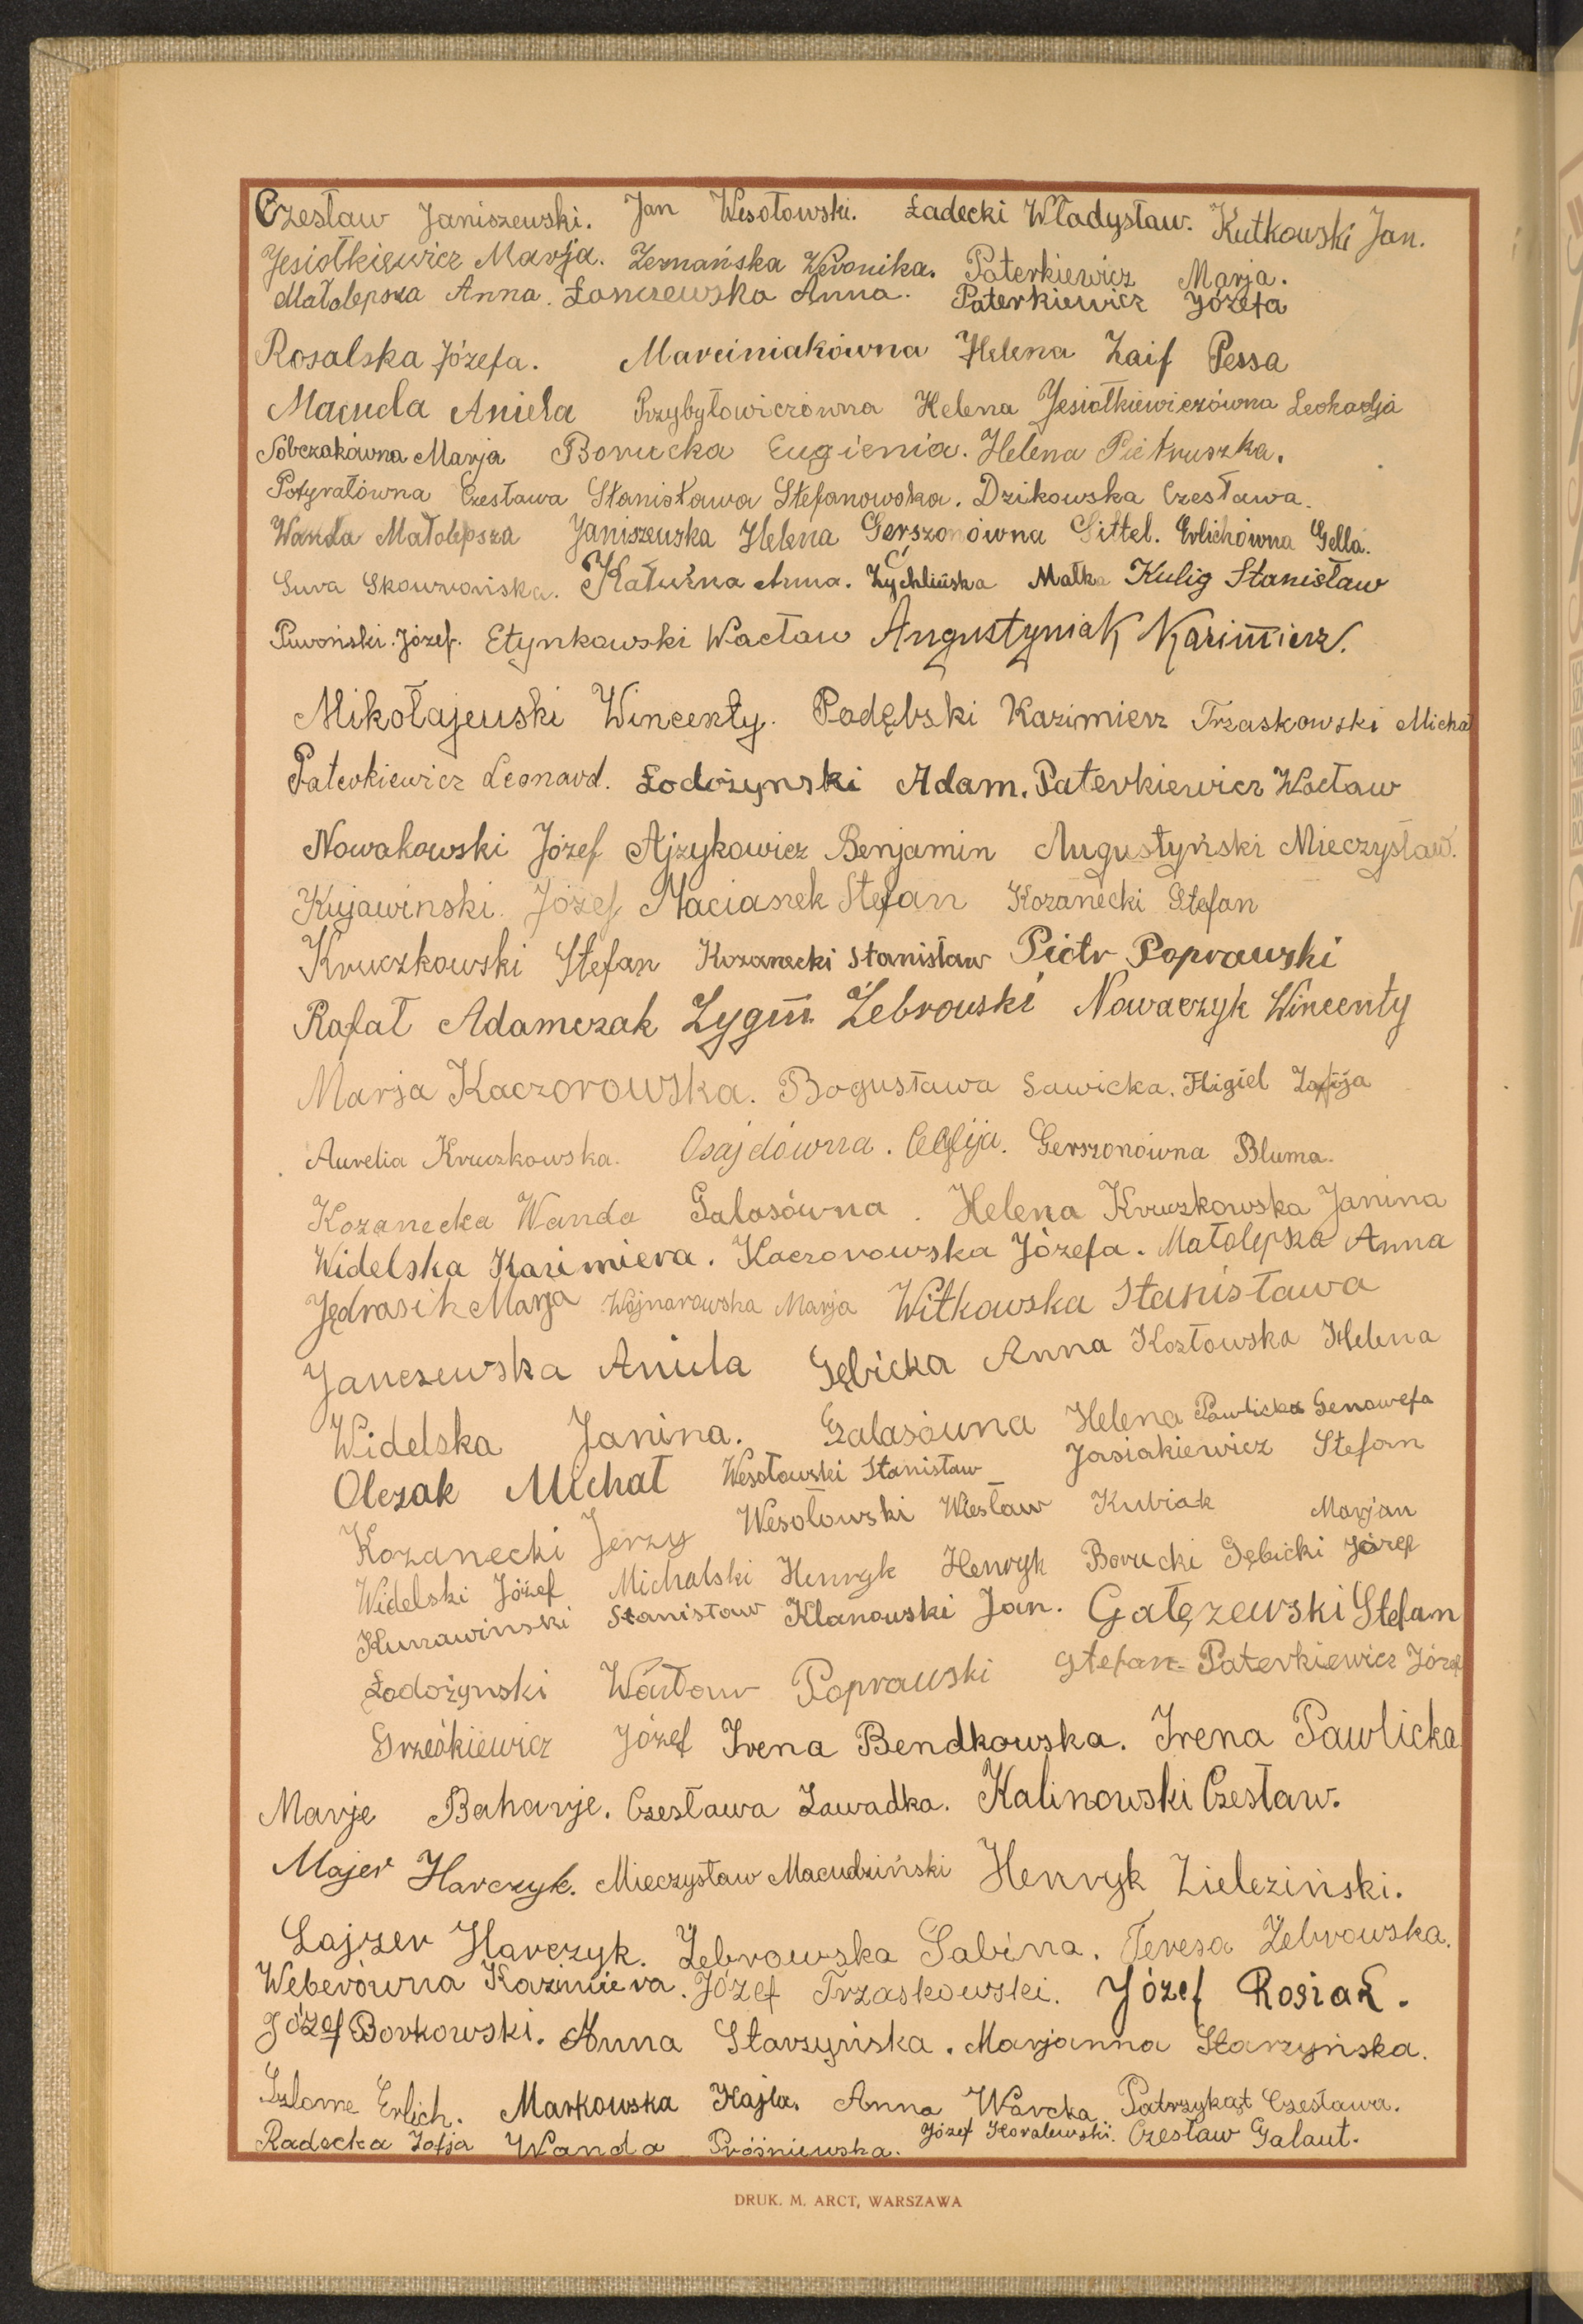 Czesław Janiszewski. Jan Wesołowski. Ładecki Władysław. Kutkowski Jan.
Jesiołkiewicz Marja. Zeznańska Weronika. Paterkiewicz Marja.
Małolepsza Anna. Łanczewska Anna. Paterkiewicz Józefa
Rosalska Józefa. Marciniakówna Helena Zaif Pessa
Macuda Aniela Przybyłowiczówna Helena Jesiołkiewiczówna Leokadja
Sobczakówna Marja Borucka Eugienia. Helena Pietruszka.
Potyrałówna Czesława Stanisława Stefanowska. Dzikowska Czesława.
Wanda Małolepsza Janiszewska Helena Gerszonówna Gittel. Erlichówna Gella.
Sura Skowrońska. Kałużna Anna. Żychlińska Małka Kulig Stanisław
Piwoński Józef. Etynkowski Wacław Augustyniak Kazimierz.
Mikołajewski Wincenty. Podębski Kazimierz Trzaskowski Michał
Paterkiewicz Leonard. Łodożynski Adam. Paterkiewicz Wacław
Nowakowski Józef Ajzykowicz Benjamin Augustyński Mieczysław.
Kujawinski. Józef Maciaszek Stefan Kozanecki Stefan
Kruczkowski Stefan Kozanecki Stanisław Piotr Poprawski
Rafał Adamczak Zygm. Żebrowski Nowaczyk Wincenty
Marja Kaczorowska. Bogusława Sawicka. Fligiel Zofija
Aurelia Kruczkowska. Osajdówna. Gerszonówna Bluma.
Kozanecka Wanda Galasówna. Helena Kruczkowska Janina
Widelska Kazimiera. Kaczorowska Józefa. Małolepsza Anna
Jędrasik Marja Wojnarowska Marja Witkowska Stanisława
Janczewska Aniela Gębicka Anna Kozłowska Helena
Widelska Janina. Galasówna Helena Pawlicka Genowefa
Olczak Michał Wesołowski Stanisław Jasiakiewicz Stefan
Kozanecki Jerzy Wesołowski Wiesław Kubiak Marjan
Widelski Józef Michalski Henryk Henryk Borucki Gębicki Józef
Kurrawinski Stanisław Klanowski Jan. Gałęzewski Stefan
Łodożynski Wacław Poprawski Stefan Paterkiewicz Józef
Grześkiewicz Józef Irena Bendkowska. Irena Pawlicka
Marje Baharje. Czesława Zawadka. Kalinowski Czesław.
Majer Harczyk. Mieczysław Macudziński Henryk Zieleziński.
Lajzer Harczyk. Żebrowska Sabina. Teresa Żebrowska.
Weberówna Kazimiera. Józef Trzaskowski. Józef Rosiak.
Józef Borkowski. Anna Starzyńska. Marjanna Starzyńska.
Szlame Erlich. Markowska Kajla. Anna Warcka Patrzykąt Czesława.
Radecka Zofja Wanda Próśniewska. Józef Kowalewski. Czesław Galaut.
DRUK. M. ARCT, WARSZAWA